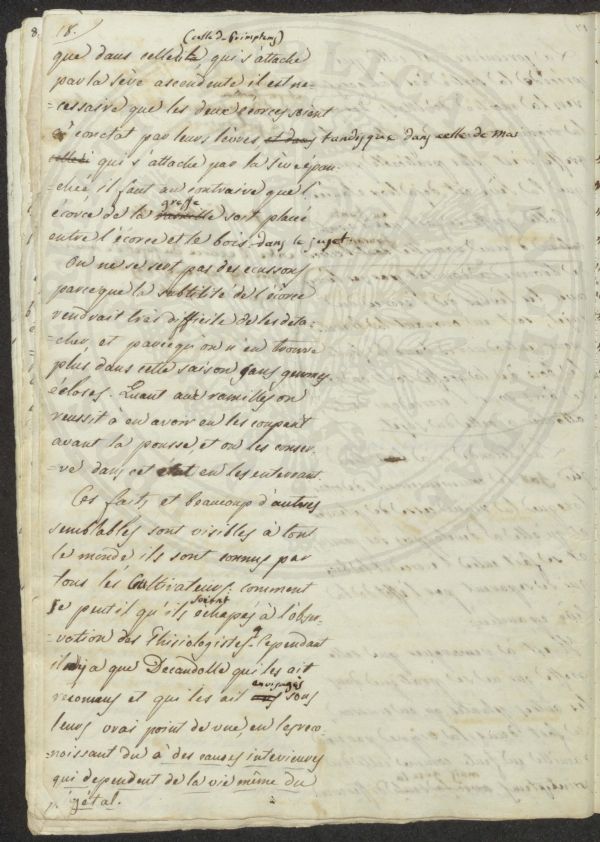 18.
(celle du Printemps)
que dans celle qui s'attache
par la sève ascendente il est ne-
=cessaire que les deux écorces soient
contat par leurs lèvres et dans tandisque dans celle de Mai
qui s'attache par la sève épan-
chée il faut au contraire que l'
greffe
écorce de la ramille soit placé
entre l'écorce et le bois dans le sujet
On ne se sert pas des ecussons
parceque la subtilité de l'écorce
rendrait très difficile de les deta-
=cher, et parcequ'on n'en trouve
plus dans cette saison sans gemmes
écloses. Quant aux ramilles on
reussit a en avoir en les coupant
avant la pousse, et on les conser
=ve dans cet état en les enterrant.
Ces faits et beaucoup d'autres
semblables sont visibles à tout
le monde ils sont connus par
tous les Cultivateurs: comment
soient
se peut il qu'ils échapés à l'obser
=vation des Phisiologistes? Cependant
il n'y a que Decandolle qui les ait
envisagés
reconnus et qui les ait sous
leurs vrai point de vue, en les reco-
=noissant du à des causes interieures
qui dependent de la vie même du
végétal.